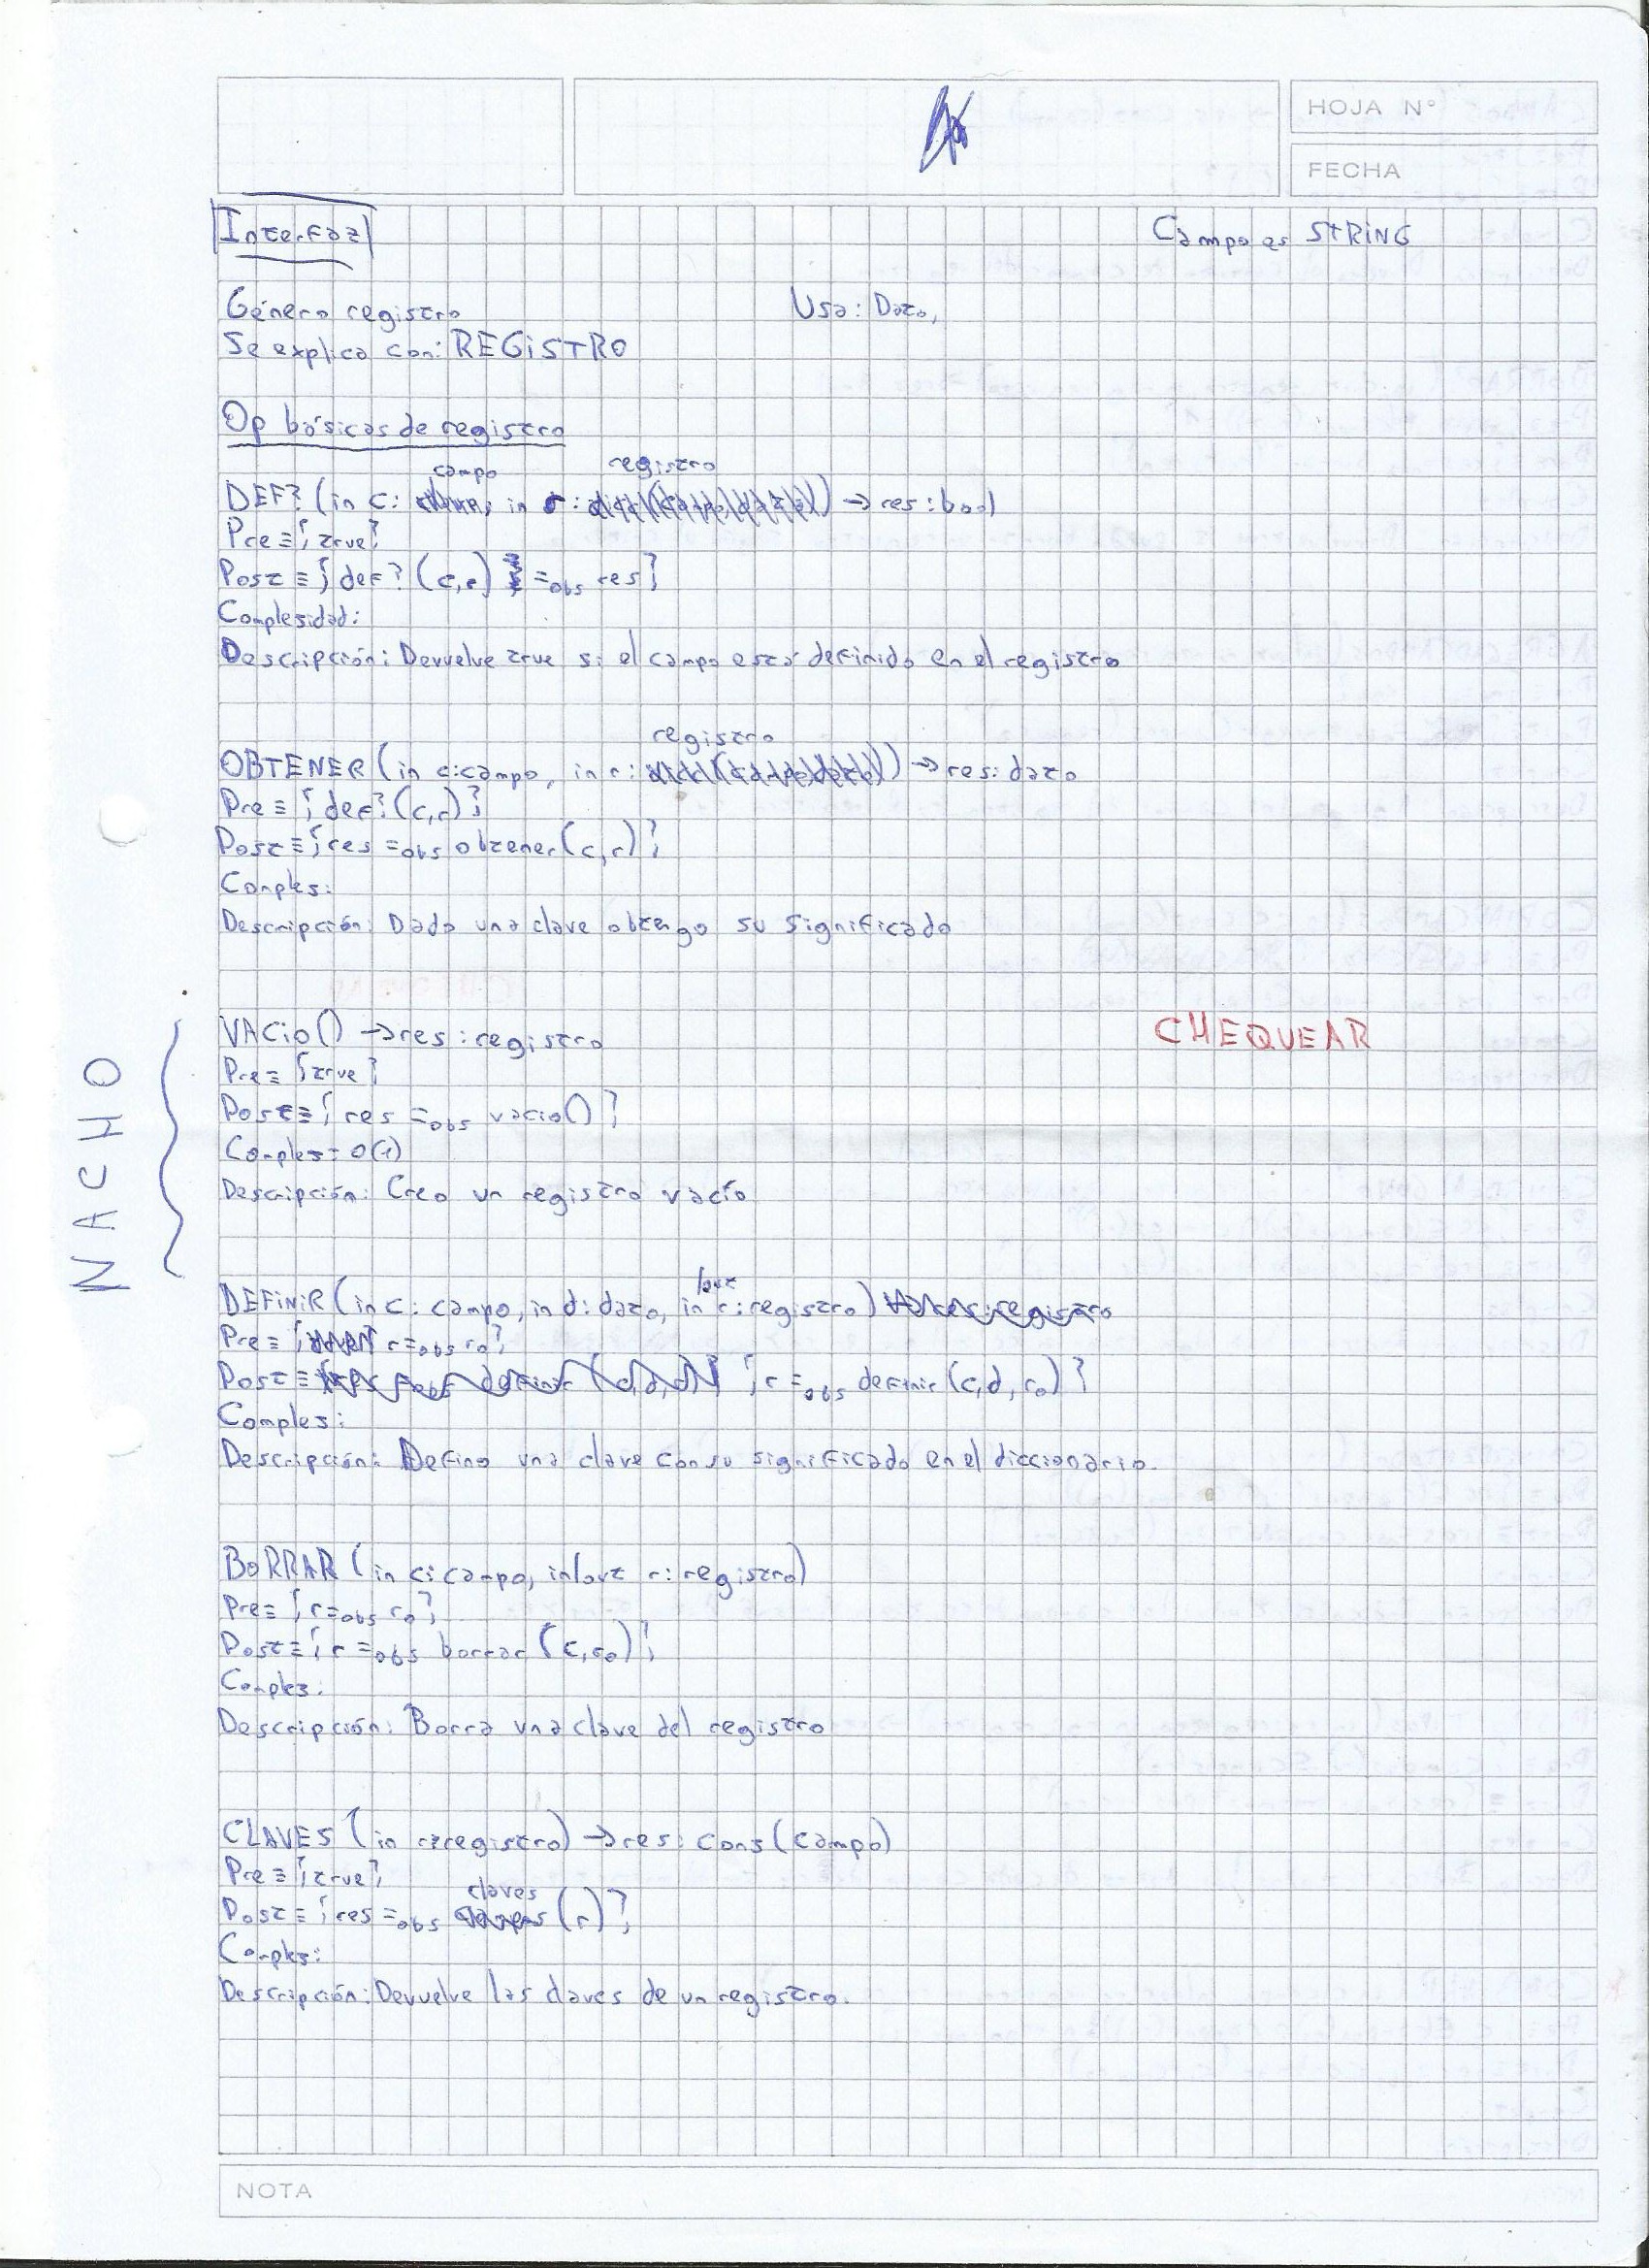 HOJA N°
FECHA
Interfaz
Campo es STRING
Género registro
Usa: Dato,
Se explica con: REGISTRO
Op básicas de registro
campo registro
DEF? (in c: in r: ) → res: bool
Pre ≡ {true}
Post ≡ {def? (c,r) =obs res}
Complesidad:
Descripción: Devuelve true si el campo está definido en el registro
registro
OBTENER (in c: campo, in r: ) → res: dato
Pre ≡ {def? (c,r)}
Post ≡ {res =obs obtener (c,r)}
Comples:
Descripción: Dado una clave obtengo su significado
NACHO
VACIO() → res: registro
CHEQUEAR
Pre ≡ {true}
Post ≡ {res =obs vacio()}
Comples: O(1)
Descripción: Creo un registro vacío
/out
DEFINIR (in c: campo, in d: dato, in r: registro)
Pre ≡ { r =obs r0}
Post ≡ {r =obs definir (c,d,r0)}
Comples:
Descripción: Defino una clave con su significado en el diccionario.
BORRAR (in c: campo, in/out r: registro)
Pre ≡ {r =obs r0}
Post ≡ {r =obs borrar (c,r0)}
Comples:
Descripción: Borra una clave del registro
CLAVES (in r: registro) → res: conj (campo)
Pre ≡ {true}
claves
Post ≡ {res =obs (r)}
Comples:
Descripción: Devuelve las claves de un registro.
NOTA